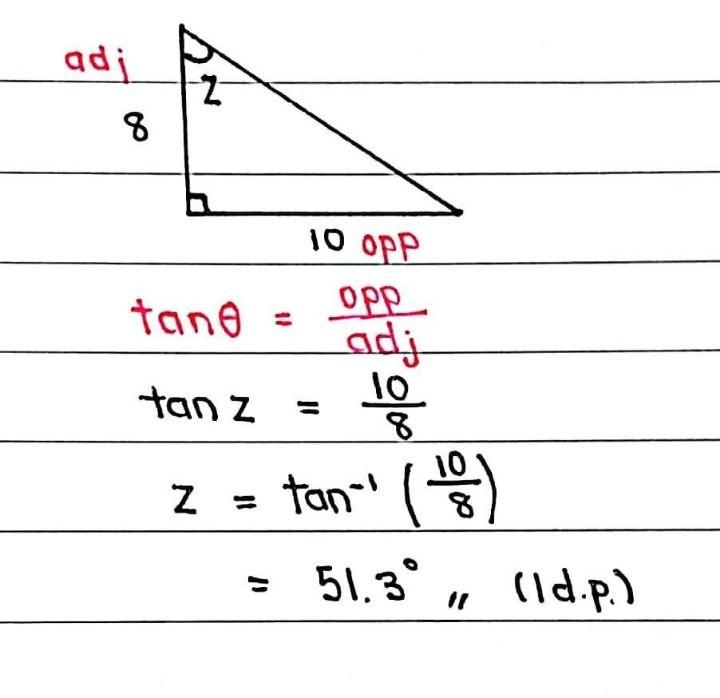 adj
z
8
10 opp
tanθ = opp/adj
tan z = 10/8
z = tan⁻¹ (10/8)
= 51.3° ,, (1d.p.)